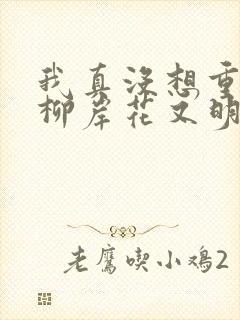 我真没想重
柳岸花又明
老鹰吃小鸡2